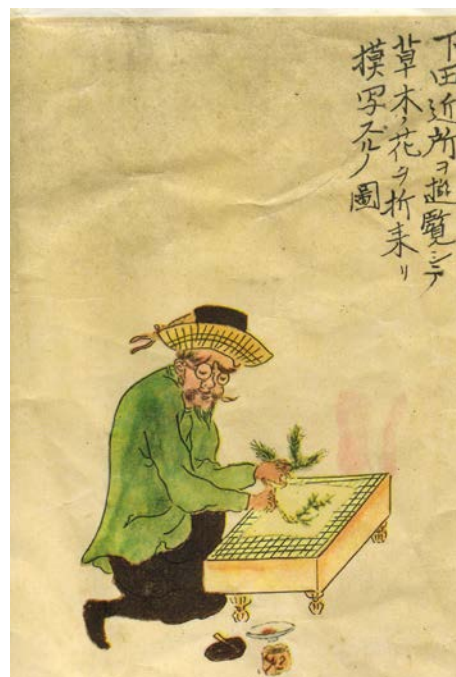 下田近所ヲ遊覧シテ
草木ノ花ヲ折来リ
摸写スルノ圖